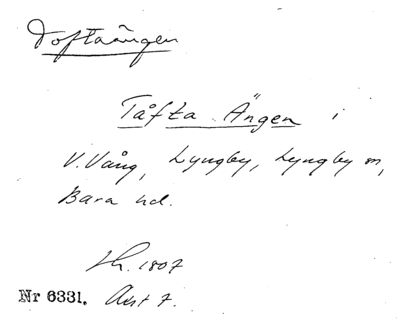 Toftaängen
Tåfta Ängen i
V. Vång, Lyngby, Lyngby sn,
Bara hd.
1807
Nr 6331. Akt 7.